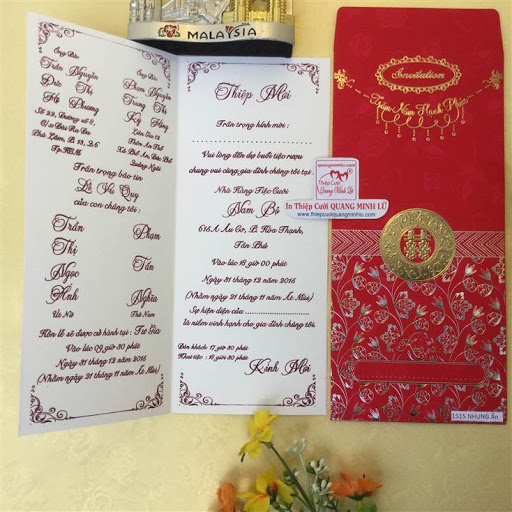 MALAYSIA
Ông Bà:
Trần Nguyên
Đức Thị
Hồ Phương
Số 22, Đường số 8,
P. Phú Lâm B, P. 12, Q.6
Tp.HCM
Ông Bà:
Phạm Nguyễn
Trung Thị
Kỳ Hồng
Quảng Ngãi
Trân trọng báo tin
Lễ Vu Quy
của con chúng tôi:
Trần Phạm
Thị
Ngọc Tấn
Anh Nghĩa
Út Nữ Thứ Nam
Hôn lễ sẽ được cử hành tại: Tư Gia
Vào lúc 09 giờ 30 phút
Ngày 31 tháng 12 năm 2016
(Nhằm ngày 21 tháng 11 năm Ất Mùi)
Thiệp Mời
Trân trọng kính mời:
Vui lòng đến dự buổi tiệc rượu
chung vui cùng gia đình chúng tôi tại:
Nhà Hàng Tiệc Cưới
Nam Bộ
616A Âu Cơ, P. Hòa Thạnh,
Tân Phú
Vào lúc 18 giờ 00 phút
Ngày 31 tháng 12 năm 2016
(Nhằm ngày 21 tháng 11 năm Ất Mùi)
Sự hiện diện của
là niềm vinh hạnh cho gia đình chúng tôi.
Đón khách: 17 giờ 30 phút
Khai tiệc: 18 giờ 30 phút
Kính Mời
Invitation
Trăm Năm Hạnh Phúc
quangminhlu.com
Thiệp Cưới
Quang Minh Lũ
In Thiệp Cưới QUANG MINH LŨ
www.thiepcuoiquangminhlu.com
囍
1515 NHUNG ẤN